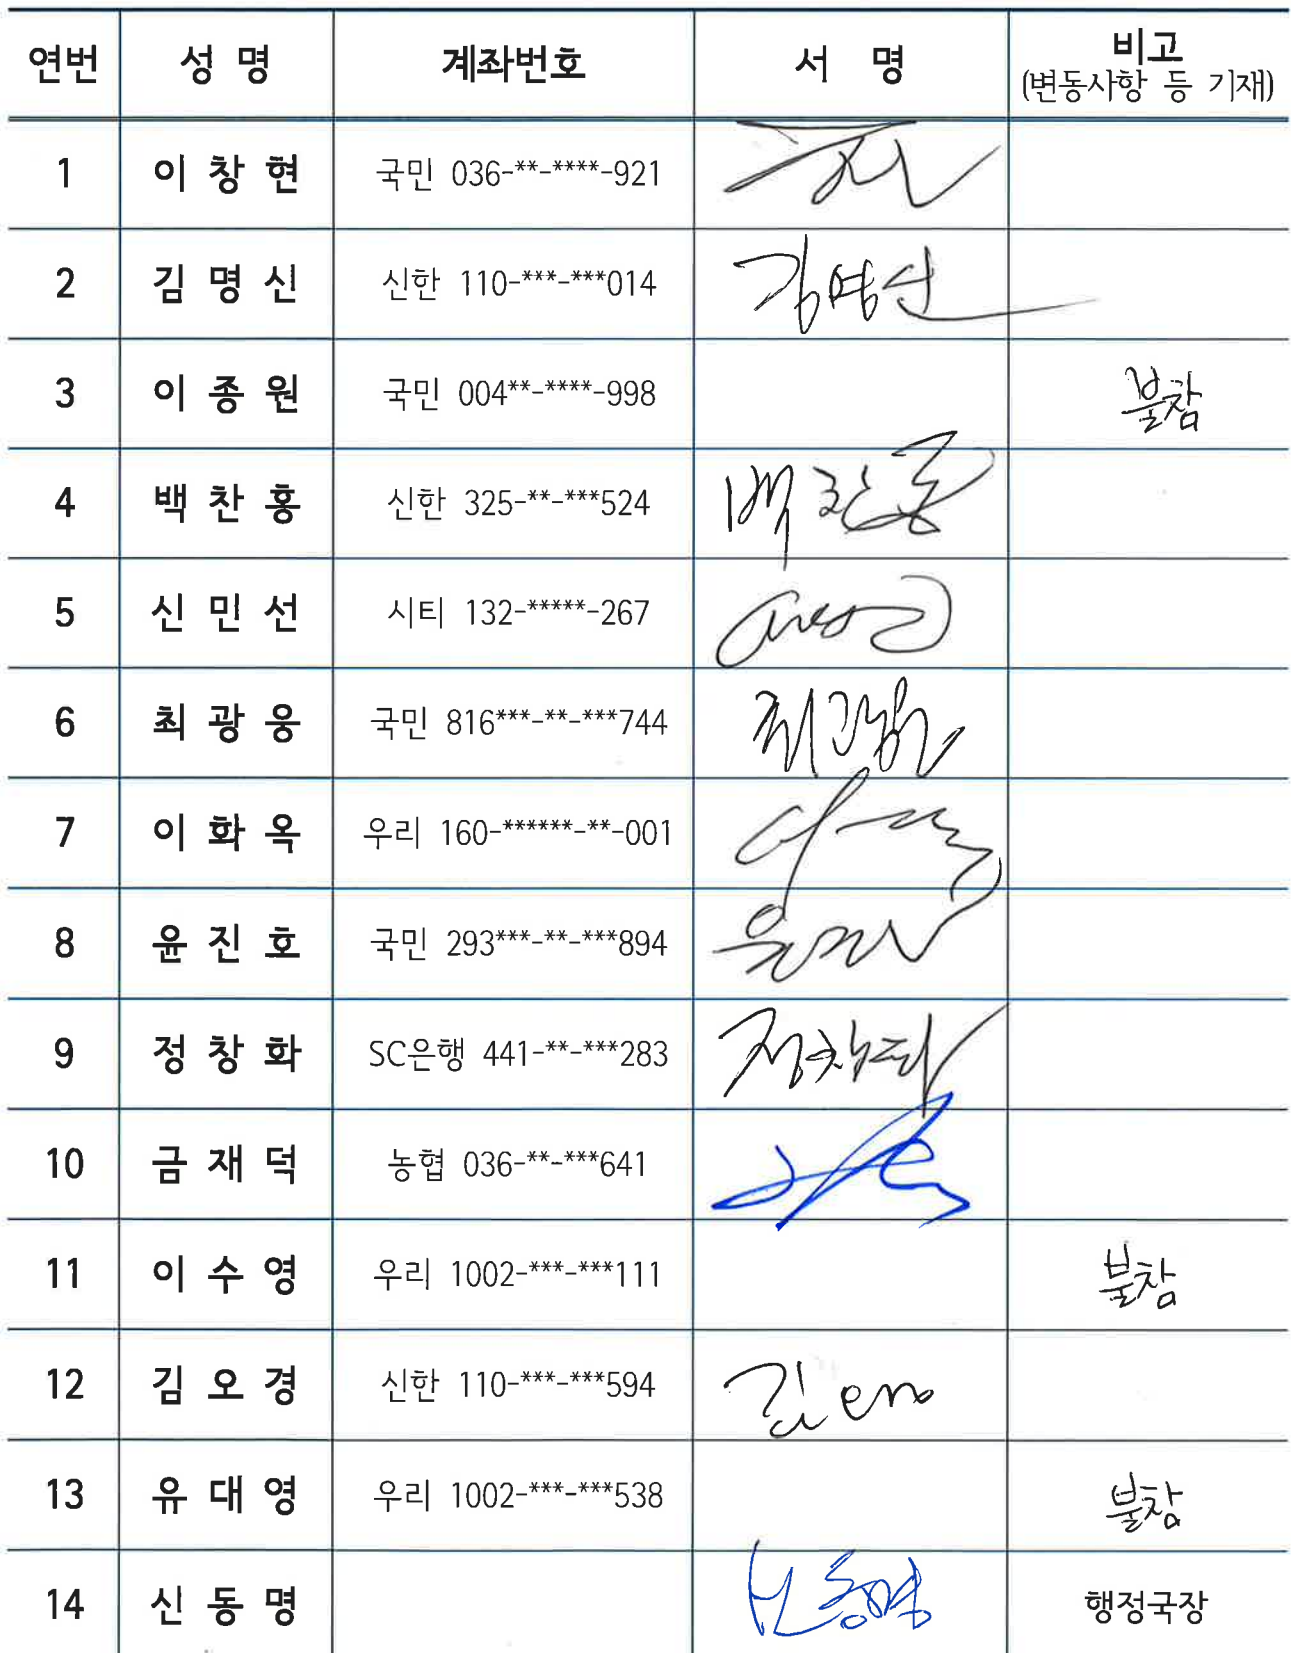 연번 성 명 계좌번호 서 명 비고
(변동사항 등 기재)
1 이 창 현 국민 036-**-****-921
2 김 명 신 신한 110-***-***014 김명신
3 이 종 원 국민 004**-****-998 불참
4 백 찬 홍 신한 325-**-***524 백찬홍
5 신 민 선 시티 132-*****-267
6 최 광 웅 국민 816***-**-***744 최광웅
7 이 화 옥 우리 160-******-**-001
8 윤 진 호 국민 293***-**-***894
9 정 창 화 SC은행 441-**-***283 정창화
10 금 재 덕 농협 036-**-***641
11 이 수 영 우리 1002-***-***111 불참
12 김 오 경 신한 110-***-***594
13 유 대 영 우리 1002-***-***538 불참
14 신 동 명 신동명 행정국장